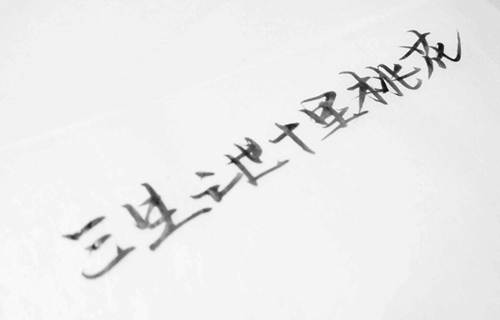 三生三世十里桃花